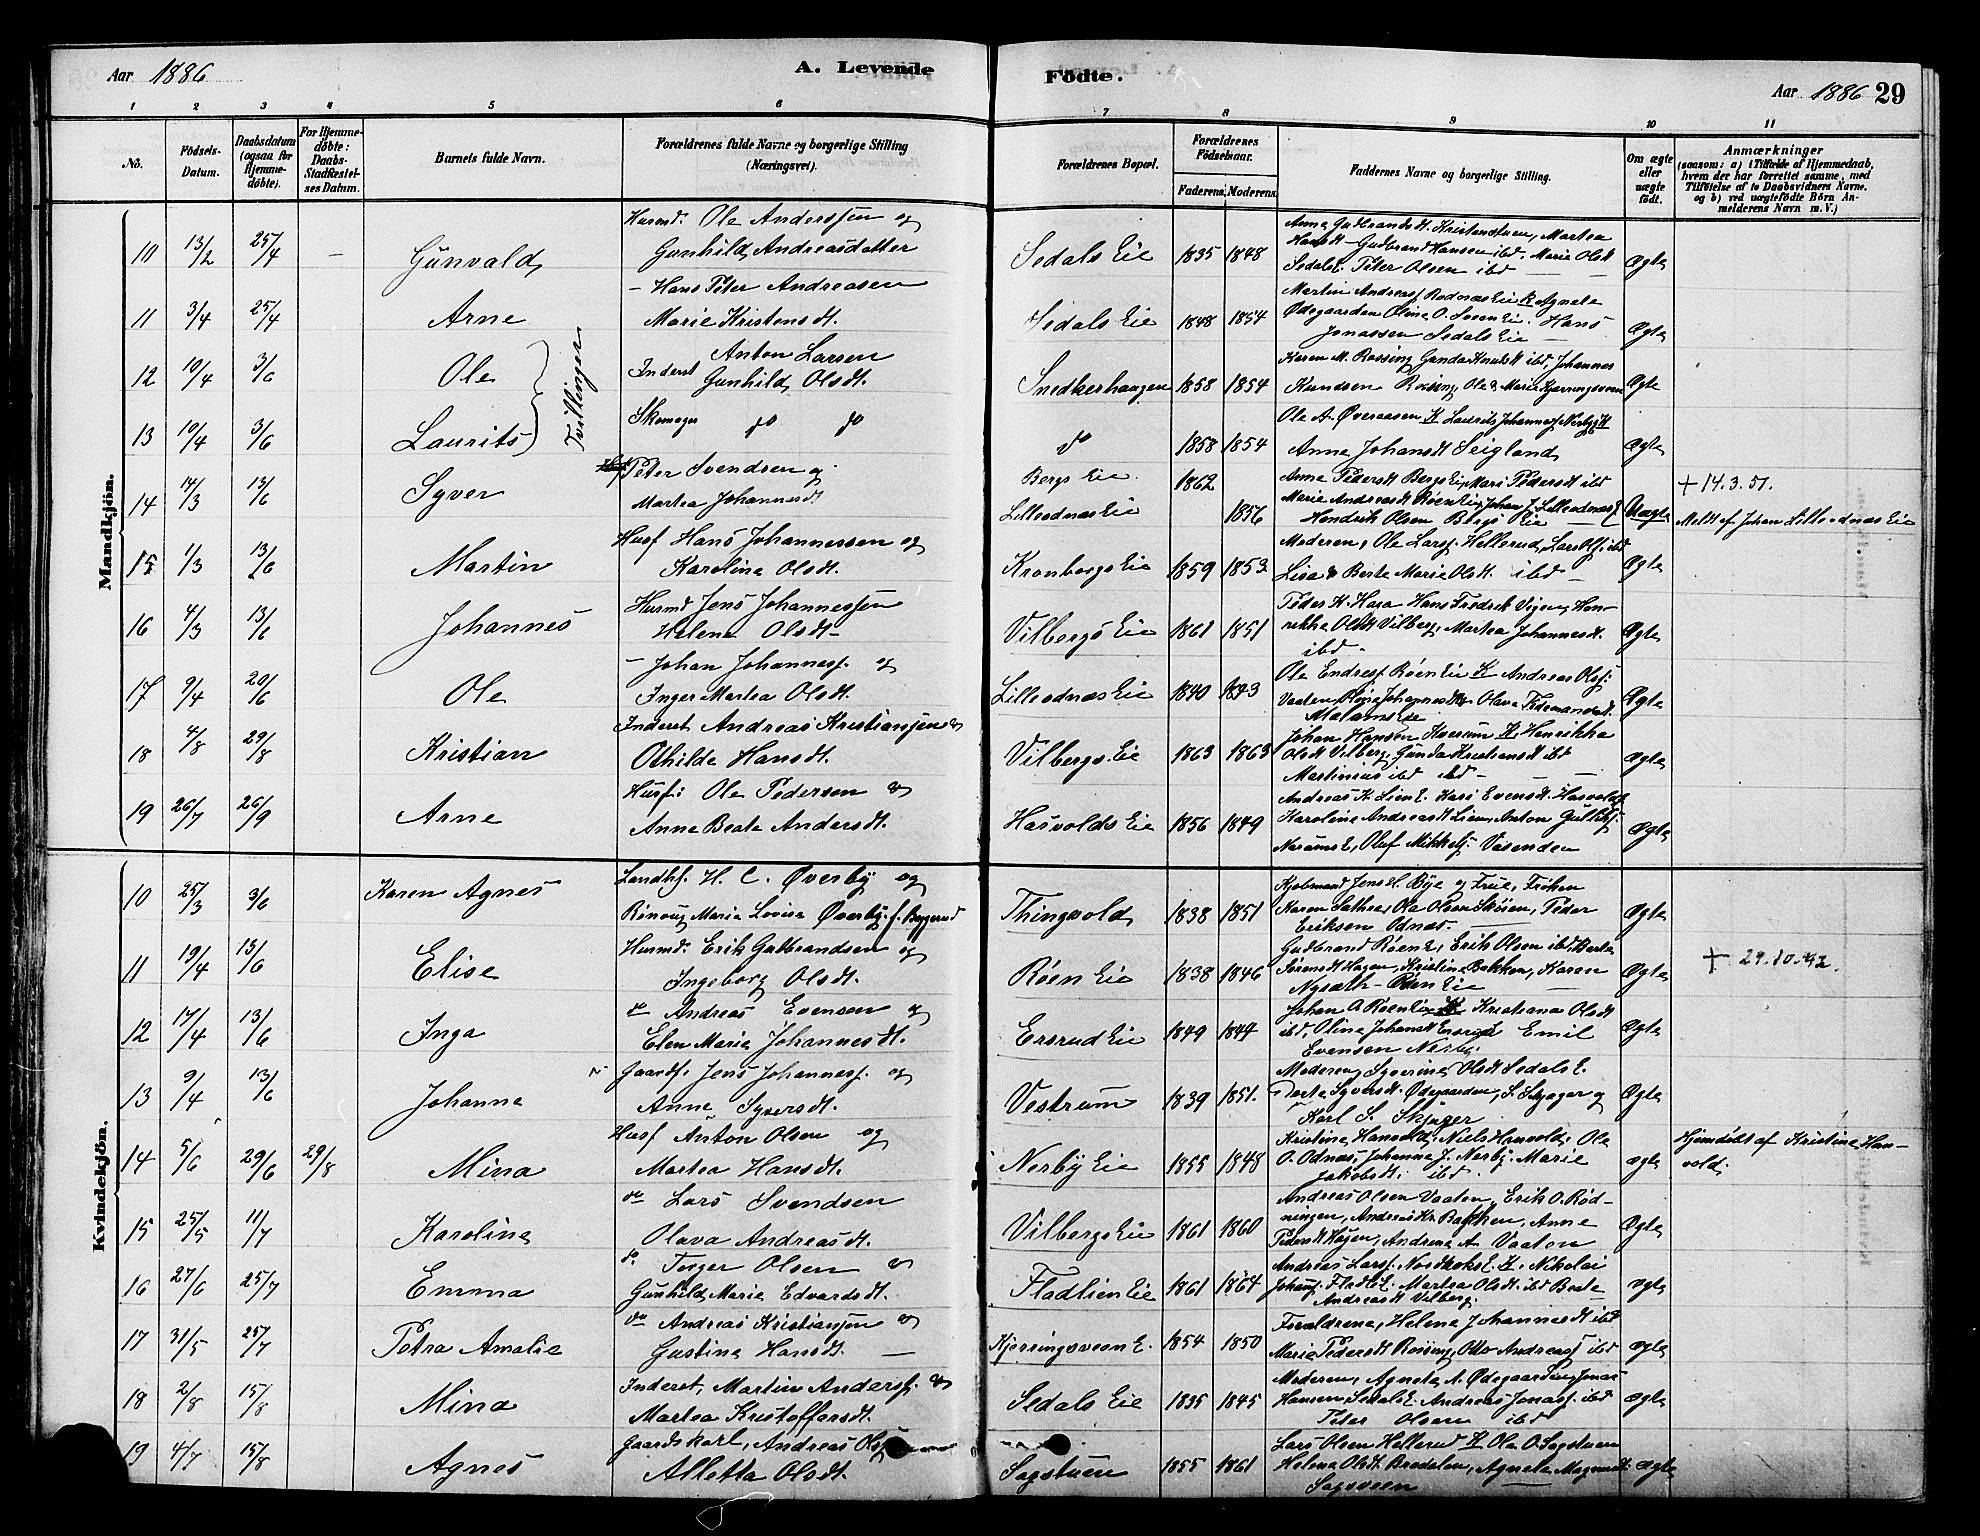 Aar 1886
A. Levende
Födte.
Aar 1886 29
1 2 3 4 5 6 7 8 9 10 11
No.
Födsels-Datum.
Daabsdatum (ogsaa för Hjemme-döbte).
For Hjemme-döbte: Daabs-Stadfæstel-ses Datum.
Barnets fulde Navn.
Forældrenes fulde Navne og borgerlige Stilling (Næringsvei).
Forældrenes Bopæl.
Forældrenes Födselsaar.
Faderens. Moderens.
Faddernes Navne og borgerlige Stilling.
Om ægte eller uægte födt.
Anmærkninger
(saasom: a) i Tilfælde af Hjemmedaab, hvem der har forrettet samme, med Tilföielse af to Daabsvidners Navne, og b) ved uægtefödte Börn An-melderens Navn m. V.)
Mandkjön.
10 13/2 25/4 – Gunvald
Husmd. Ole Anderssen og
Gunhild Andreasdatter
Sedals Eie 1835 1848
Anne Gudbrandsdt. Kristenstuen, Martea
Hansdt Gudbrand Hansen ibd. Marie Olsdt
Sedals E. Peter Olsen ibd
Ægte
11 3/4 25/4 Arne
– Hans Peter Andreasen
Marie Kristensdt.
Sedals Eie 1848 1854
Martin Andreasf. Rodnæs Eie Agnete
Ødegaarden Oline O. Eie. Hans
Jonassen Sedals Eie
Ægte
12 10/4 3/6 Ole
Tvillinger
Anton Larsen
Inderst Gunhild Olsdt.
Snedkerhaugen 1858 1854
Karen M. Røssing Gunda Knudsdt ibd, Johannes
Knudsen Røssing Ole & Marie Kjærringsveen
Ægte
13 10/4 3/6 Laurits
Skomager do do
do 1858 1854
Ole A. Øveraasen K. Laurits Johannesf. Nerby
Anne Johansdt Seigland
Ægte
14 14/3 13/6 Syver
Peter Svendsen og
Martea Johannesdt
Bergs Eie. 1862
Lilleodnæs Eie 1856
Anne Pedersdt Bergs Eie, Mari Pedersdt ibd
Marie Andreasdt Røen Eie, Johan J. Lilleodnæs E
Hendrik Olsen Bergs Eie
Uægte
+ 14.3.51.
Meldt af Johan Lilleodnæs Eie
15 1/3 13/6 Martin
Husf Hans Johannessen og
Karoline Olsdt.
Kronborgs Eie 1859 1853
Moderen, Ole Larsf. Hellerud, Lars Olsf. ibd
Lisa & Berte Marie Olsdt. ibd
Ægte
16 4/3 13/6 Johannes
Husmd Jens Johannessen
Helene Olsdt
Vilbergs Eie 1861 1851
Peder K. Hara Hans Fredrik Vigen, Hen-
rikke Olsdt Vilberg, Martea Johannesdt.
ibd.
Ægte
17 9/4 20/6 Ole
– Johan Johannesf. og
Inger Martea Olsdt.
Lilleodnæs Eie 1840 1843
Ole Endresf. Røen Eie K Andreas Olsf.
Vaaten Oline Johannesdt Olava Tidemandsdt.
Malams Eie
Ægte
18 4/8 29/8 Kristian
Inderst Andreas Kristiansen &
Othilde Hansdt.
Vilbergs Eie 1863 1863
Johan Hansen Kværum K. Henrikka
Olsdt Vilberg, Gunda Kristiansdt ibd
Martinius ibd ibd
Ægte
19 26/7 26/9 Arne
Husf: Ole Pedersen &
Anne Beate Andersdt.
Hasvolds Eie 1856 1849
Andreas K. Lien E. Kari Evensdt. Hasvolds
Karoline Andreasdt Lien, Anton Gulliksf.
Narums E, Oluf Mikkelsf. Vasenden
Ægte
Kvindekjön.
10 25/3 3/6 Karen Agnes
Landhf. H. C. Øverby og
Rønnug Maria Lovise Øverby f. Byggerud
Thingvold 1838 1851
Kjøbmand Jens H. Bye og Frue, Frøken
Karen Sathre, Ole Olsen Skøien, Peder
Eriksen Odnæs.
Ægte
11 19/4 13/6 Elise
Husmd. Erik Gulbrandsen og
Ingeborg Olsdt.
Røen Eie 1838 1846
Gudbrand Røen E, Erik Olsen ibd, Berte
Sørensdt Hagen, Kristine Bakken, Karen
Nysæth Røen Eie
Ægte
+ 29.10.42.
12 17/4 13/6 Inga
do Andreas Evensen og
Elen Marie Johannesdt.
Ersrud Eie 1849 1844
Johan A. Røen Eie Kristiana Olsdt
ibd, Oline Johansdt Ersrud Emil
Evensen Nerby.
Ægte
13 9/4 13/6 Johanne
Gaardf. Jens Johannesf. og
Anne Syversdt.
Vestrum 1839 1851.
Moderen, Syverine Olsdt Sedals E.
Dorte Syversdt. Ødegaarden, S. Skjager og
Karl S. Skjager
Ægte
14 5/6 29/6 29/8 Mina
Husf Anton Olsen og
Martea Hansdt.
Nerby Eie 1855 1848
Kristine Hanvold, Niels Hanvold, Ole
O. Odnæs, Johanne J. Nerby. Marie
Jakobsdt. ibd.
ægte
Hjemdøbt af Kristine Han-
vold.
15 25/5 11/7 Karoline
do Lars Svendsen
Olava Andreasdt.
Vilbergs Eie 1861 1860
Andreas Olsen Vaaten, Erik O. Rød-
ningen, Andreas Kr. Bakken, Anne
Pedersdt Hagen, Andrine A. Vaaten
Ægte
16 27/6 25/7 Emma
do Torger Olsen &
Gunhild Marie Edvardsdt.
Fladlien Eie 1861 1864
Andreas Larsf. Nordkoks E. K. Nikolai
Johansf. Fladl. E. Martea Olsdt. ibd Berte
Andreasdt Vilberg.
ægte
17 31/5 25/7 Petra Amalie
do Andreas Kristiansen &
Gustine Hansdt.
Kjerringsveen E. 1854 1850
Forældrene, Helene Johannesdt ibd
Marie Pedersdt Røssing, Otto Andreasf ibd
ægte
18 2/8 15/8 Mina
Inderst, Martin Andersf. &
Martea Kristoffersdt.
Sedals Eie 1835 1845
Moderen, Agnete A. Ødegaarden Jonas
Hansen Sedals E. Andreas Jonasf. ibd
Peter Olsen ibd
ægte
19 4/7 15/8 Agnes
Gaardskarl, Andreas Olsf
Alletta Olsdt.
Sagstuen 1855 1861
Lars Olsen Hellerud K Ole O. Sagstuen
Helene Olsdt. Brødalen, Agnete Magnusdt.
Sagsveen
ægte